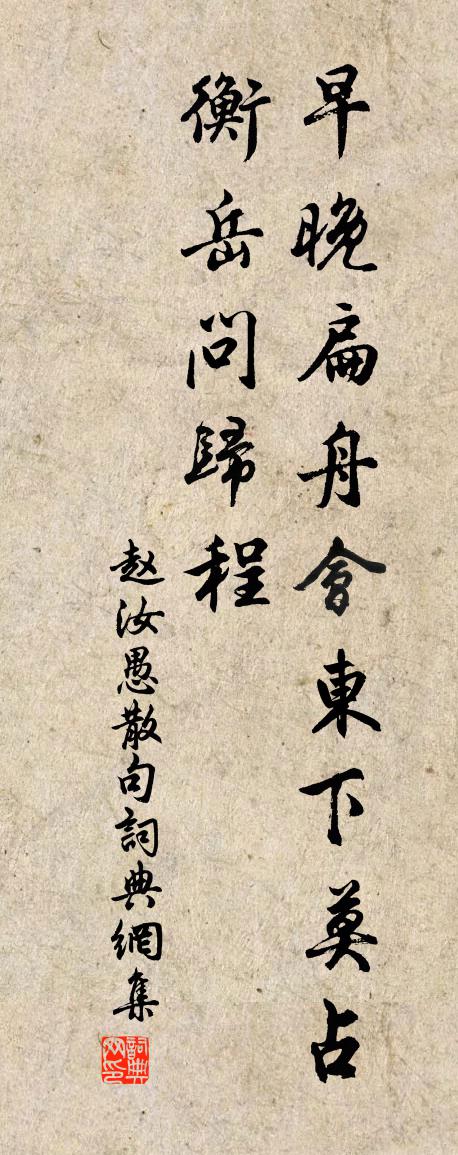 早晚扁舟會東下莫占
衡岳問歸程
赵汝愚散句詞典網集
詞典网印